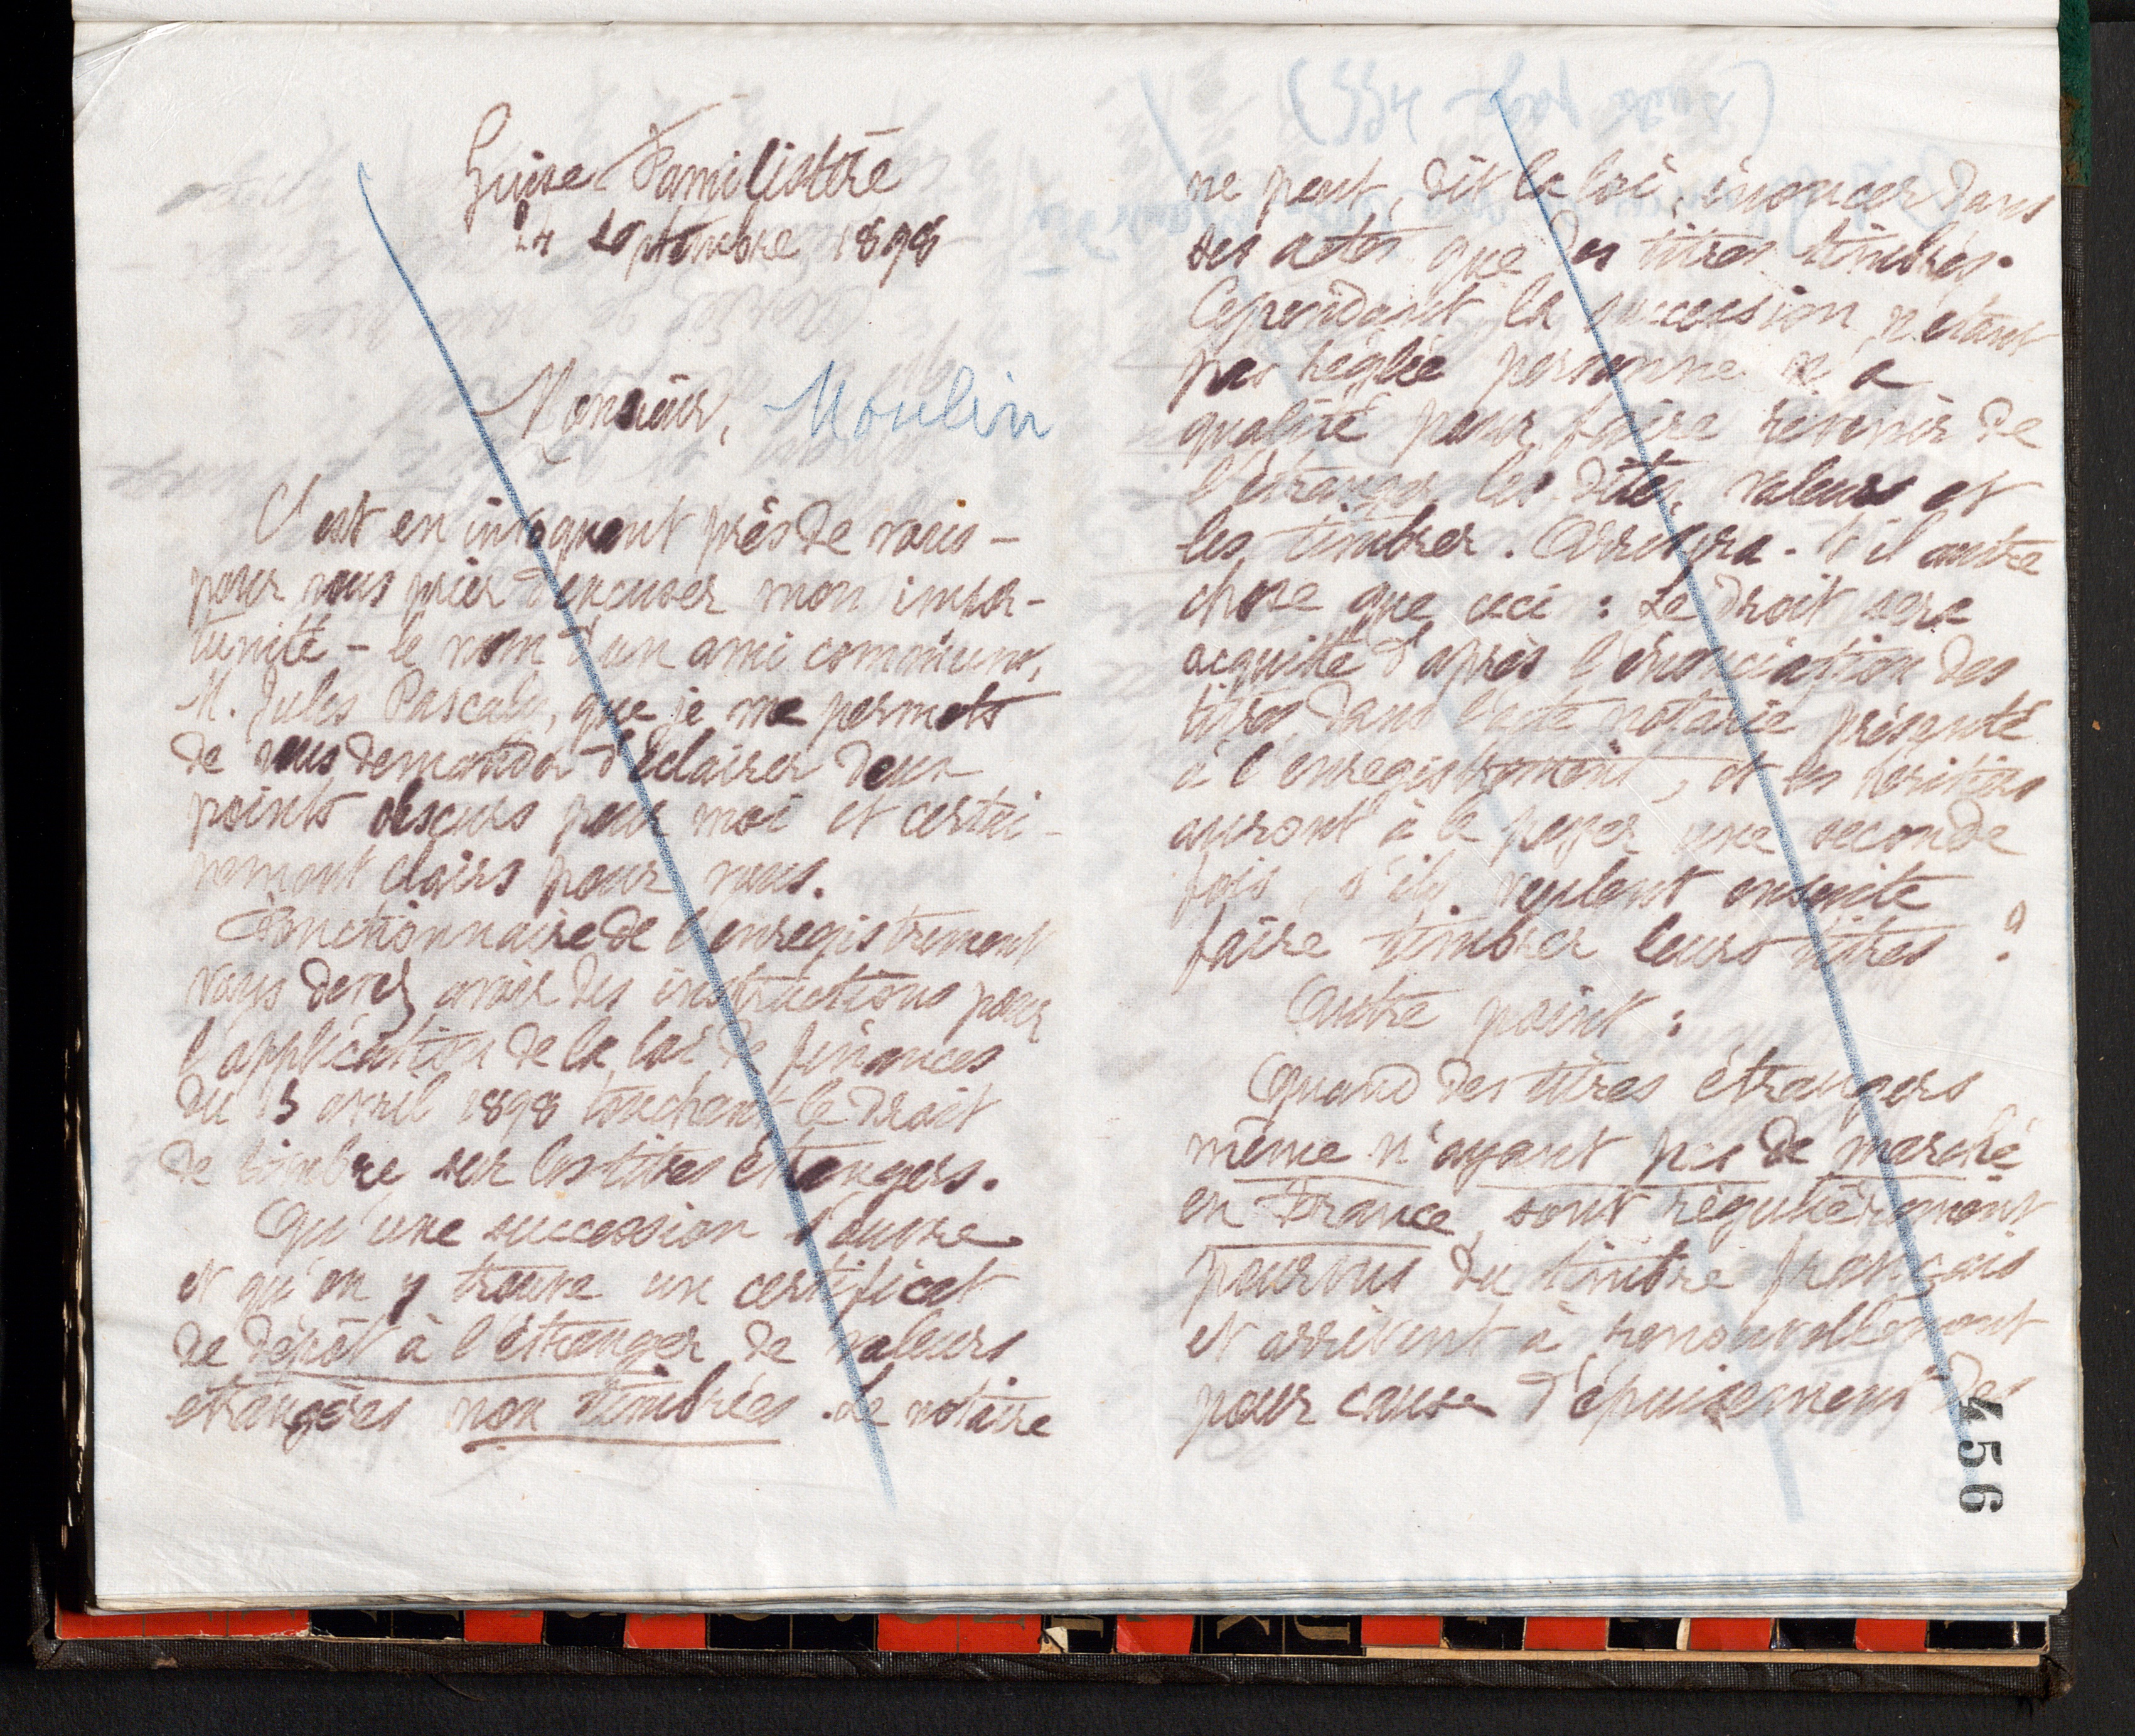 Guise Familistère
24 septembre 1898
Monsieur, Moulin
C'est en invoquant près de vous –
pour vous prier d'excuser mon impor-
tunité – le nom d'un ami commun,
M. Jules Pascaly, que je me permets
de vous demander d'éclairer deux
points obscurs pour moi et certai-
nement clairs pour vous.
Fonctionnaire de l'enregistrement
vous devez avoir des instructions pour
l'application de la loi de finances
du 13 avril 1898 touchant le droit
de timbre sur les titres étrangers.
Qu'une succession s'ouvre
et qu'on y trouve un certificat
de dépôt à l'étranger de valeurs
étrangères non timbrées. Le notaire
ne peut, dit la loi, énoncer dans
ses actes que des titres timbrés.
Cependant la succession n'étant
pas réglée personne n'a
qualité pour faire revenir de
l'étranger les dites valeurs et
les timbrer. Arrivera-t'il autre
chose que ceci : Le droit sera
acquitté d'après l'énonciation des
titres dans l'acte notarié présenté
à l'enregistrement, et les héritiers
auront à le payer une seconde
fois, s'ils veulent ensuite
faire timbrer leurs titres ?
Autre point :
Quand des titres étrangers
même n'ayant pas de marché
en France, sont régulièrement
pourvus du timbre français
et arrivent à renouvellement
pour cause d'épuisement des
456